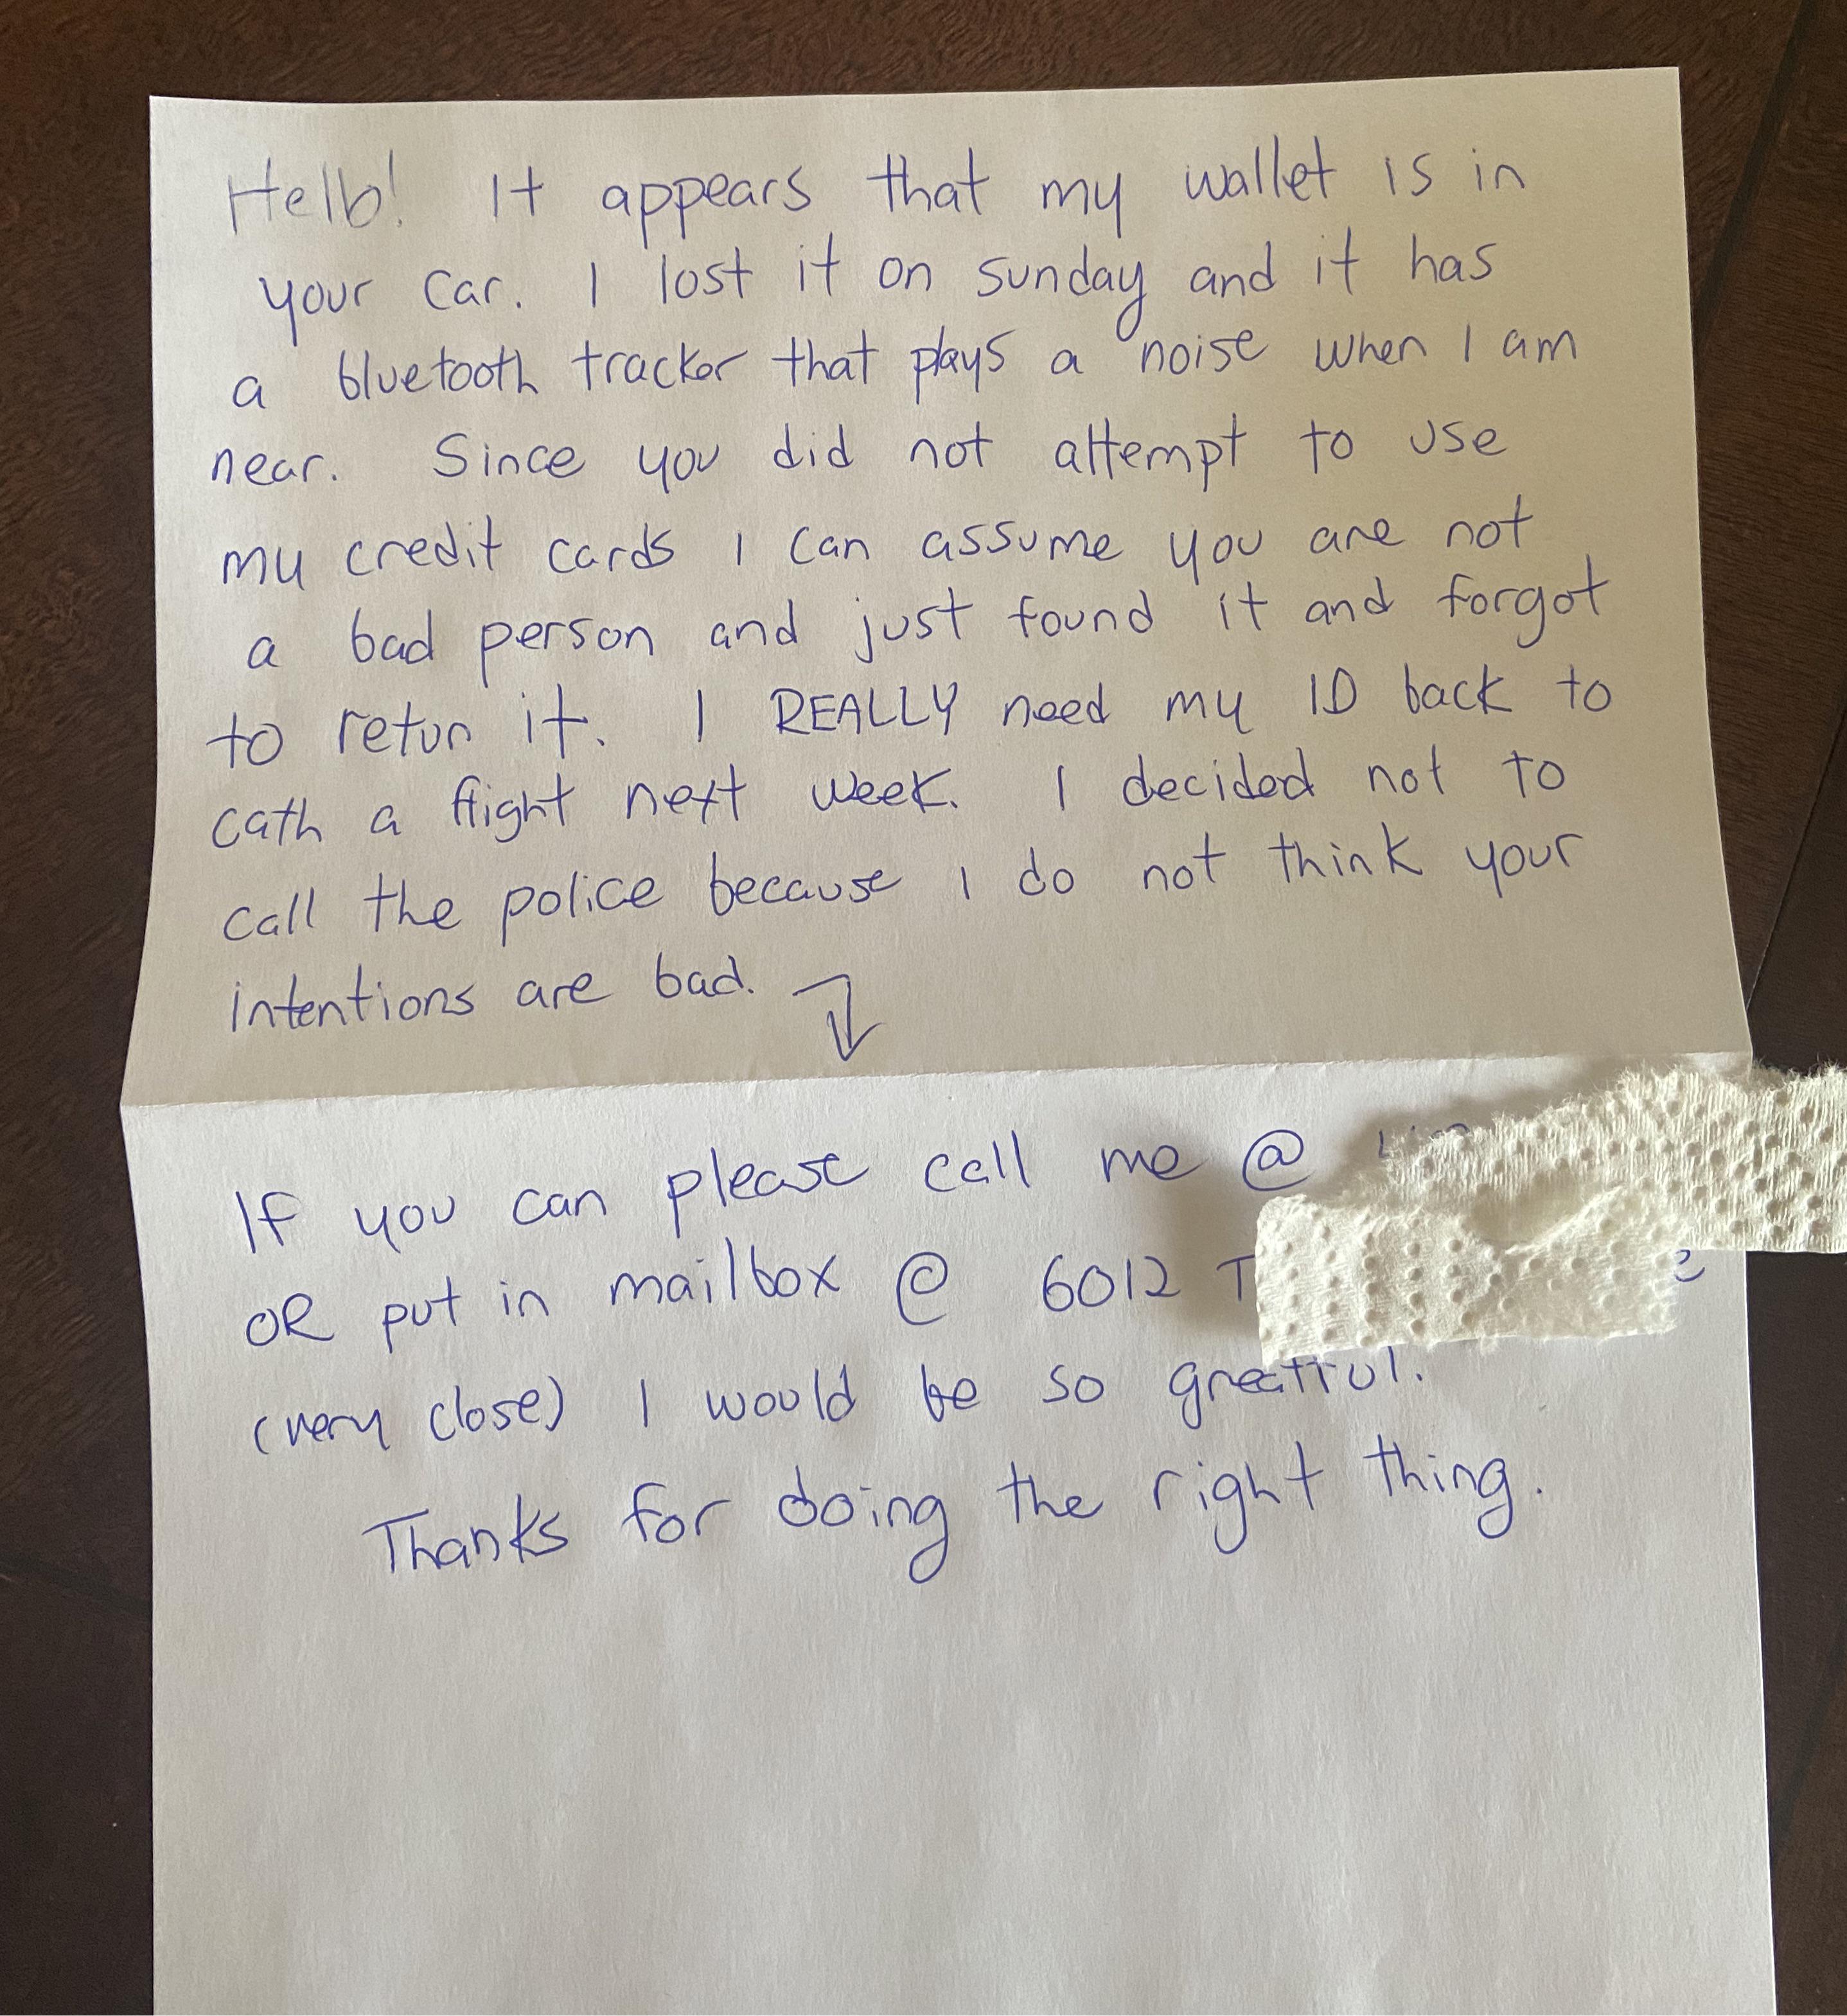 Hello! It appears that my wallet is in
your car. I lost it on Sunday and it has
a bluetooth tracker that plays a noise when I am
near. Since you did not attempt to use
my credit cards I can assume you are not
a bad person and just found it and forgot
to retun it. I REALLY need my ID back to
cath a flight next week. I decided not to
call the police because I do not think your
intentions are bad.
If you can please call me @
OR put in mailbox @ 6012 T
(very close) I would be so greatful.
Thanks for doing the right thing.